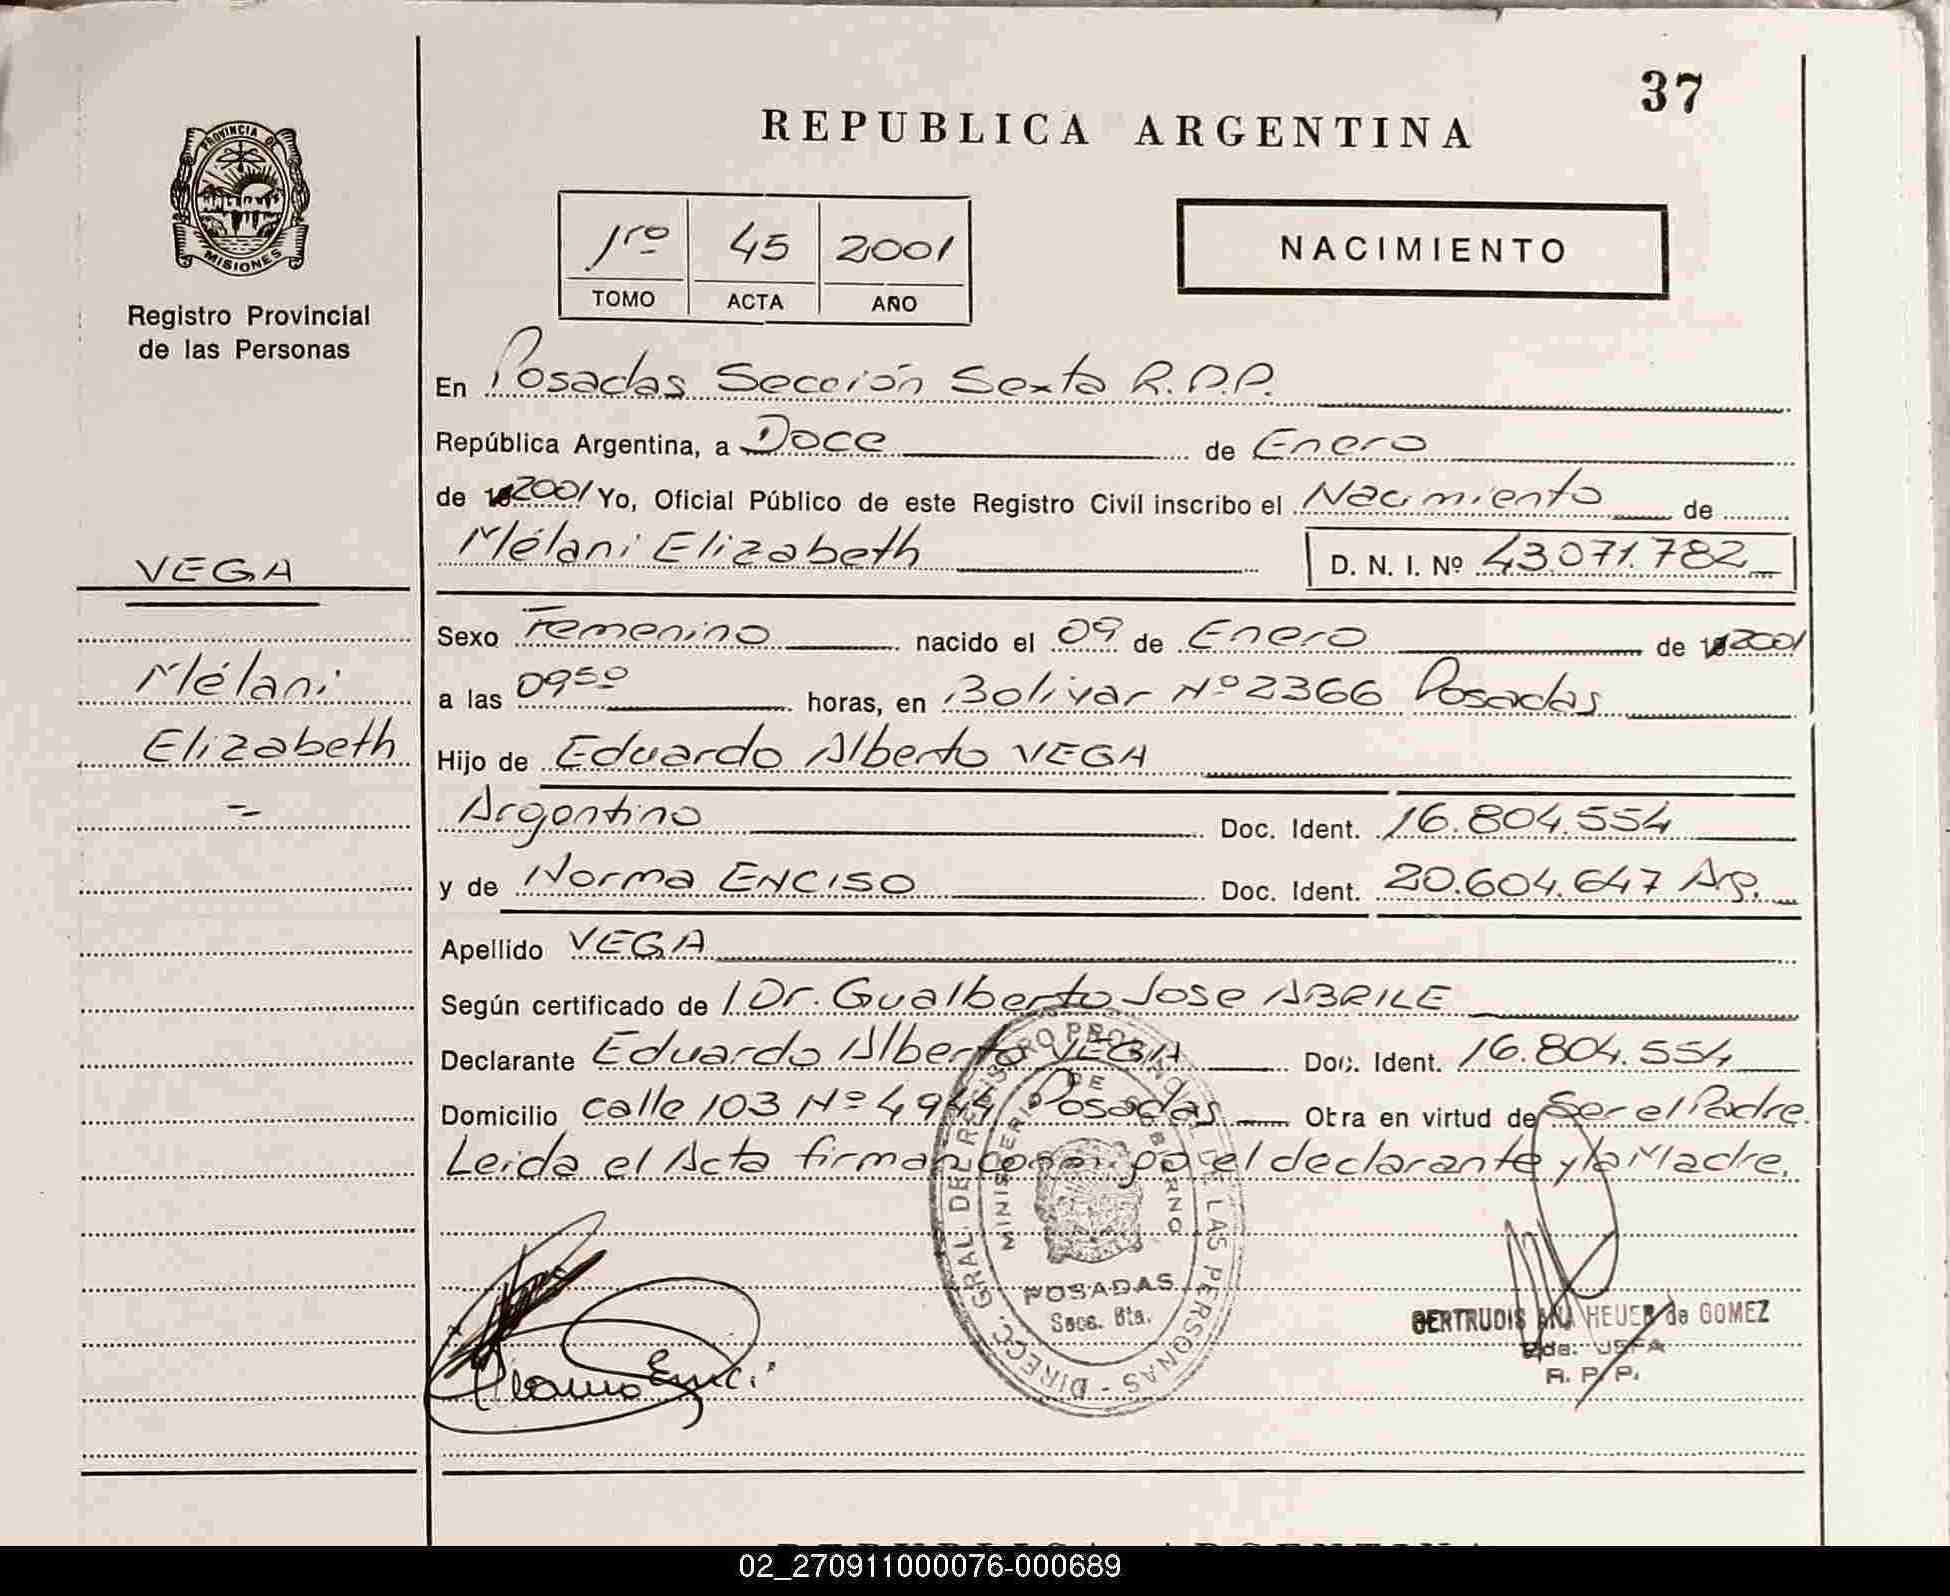 37
REPUBLICA ARGENTINA
PROVINCIA DE
MISIONES
Registro Provincial
de las Personas
1ro 45 2001
TOMO ACTA AÑO
NACIMIENTO
En Posadas Sección Sexta R.P.P.
República Argentina, a Doce de Enero
de 2001 Yo, Oficial Público de este Registro Civil inscribo el Nacimiento de
Mélani Elizabeth D. N. I. Nº 43.071.782
VEGA
Mélani
Elizabeth
Sexo Femenino nacido el 09 de Enero de 2001
a las 09⁵⁰ horas, en Bolivar Nº 2366 Posadas
Hijo de Eduardo Alberto VEGA
Argentino Doc. Ident. 16.804.554
y de Norma ENCISO Doc. Ident. 20.604.647 Arg.
Apellido VEGA
Según certificado de / Dr. Gualberto Jose ABRILE
Declarante Eduardo Alberto VEGA Doc. Ident. 16.804.554
Domicilio calle 103 Nº 4944 Posadas Obra en virtud de Ser el Padre.
Leida el Acta firman conmigo el declarante y la Madre.
DIRECC. GRAL. DEL REGISTRO PROVINCIAL DE LAS PERSONAS -
MINISTERIO DE GOBIERNO
POSADAS
Secc. 6ta.
GERTRUDIS HEUER de GOMEZ
2da. JEFA
R. P. P.
REPUBLICA ARGENTINA
02_270911000076-000689